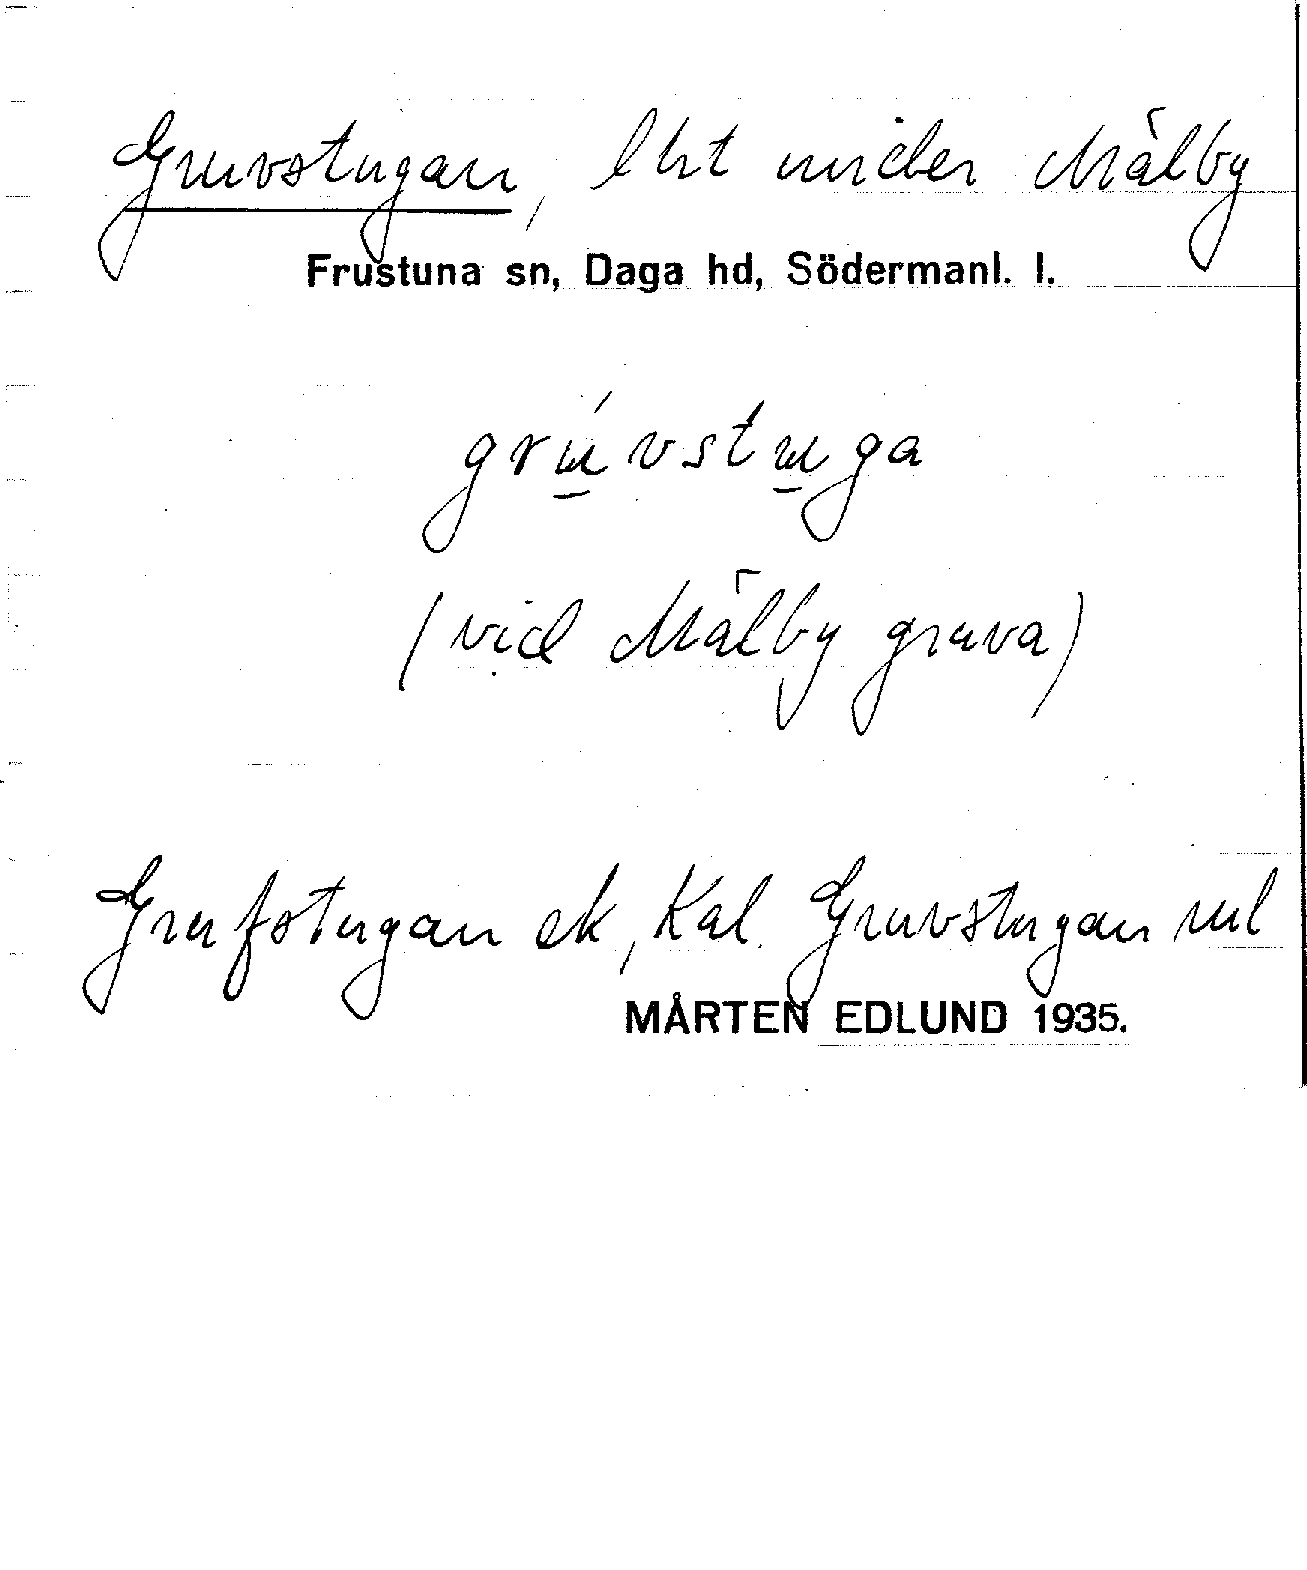 Gruvstugan, lht under Mälby
Frustuna sn, Daga hd, Södermanl. l.
grɯ́vstɯga
(vid Mälby gruva)
Grufstugan ek, Kal. Gruvstugan rul
MÅRTEN EDLUND 1935.